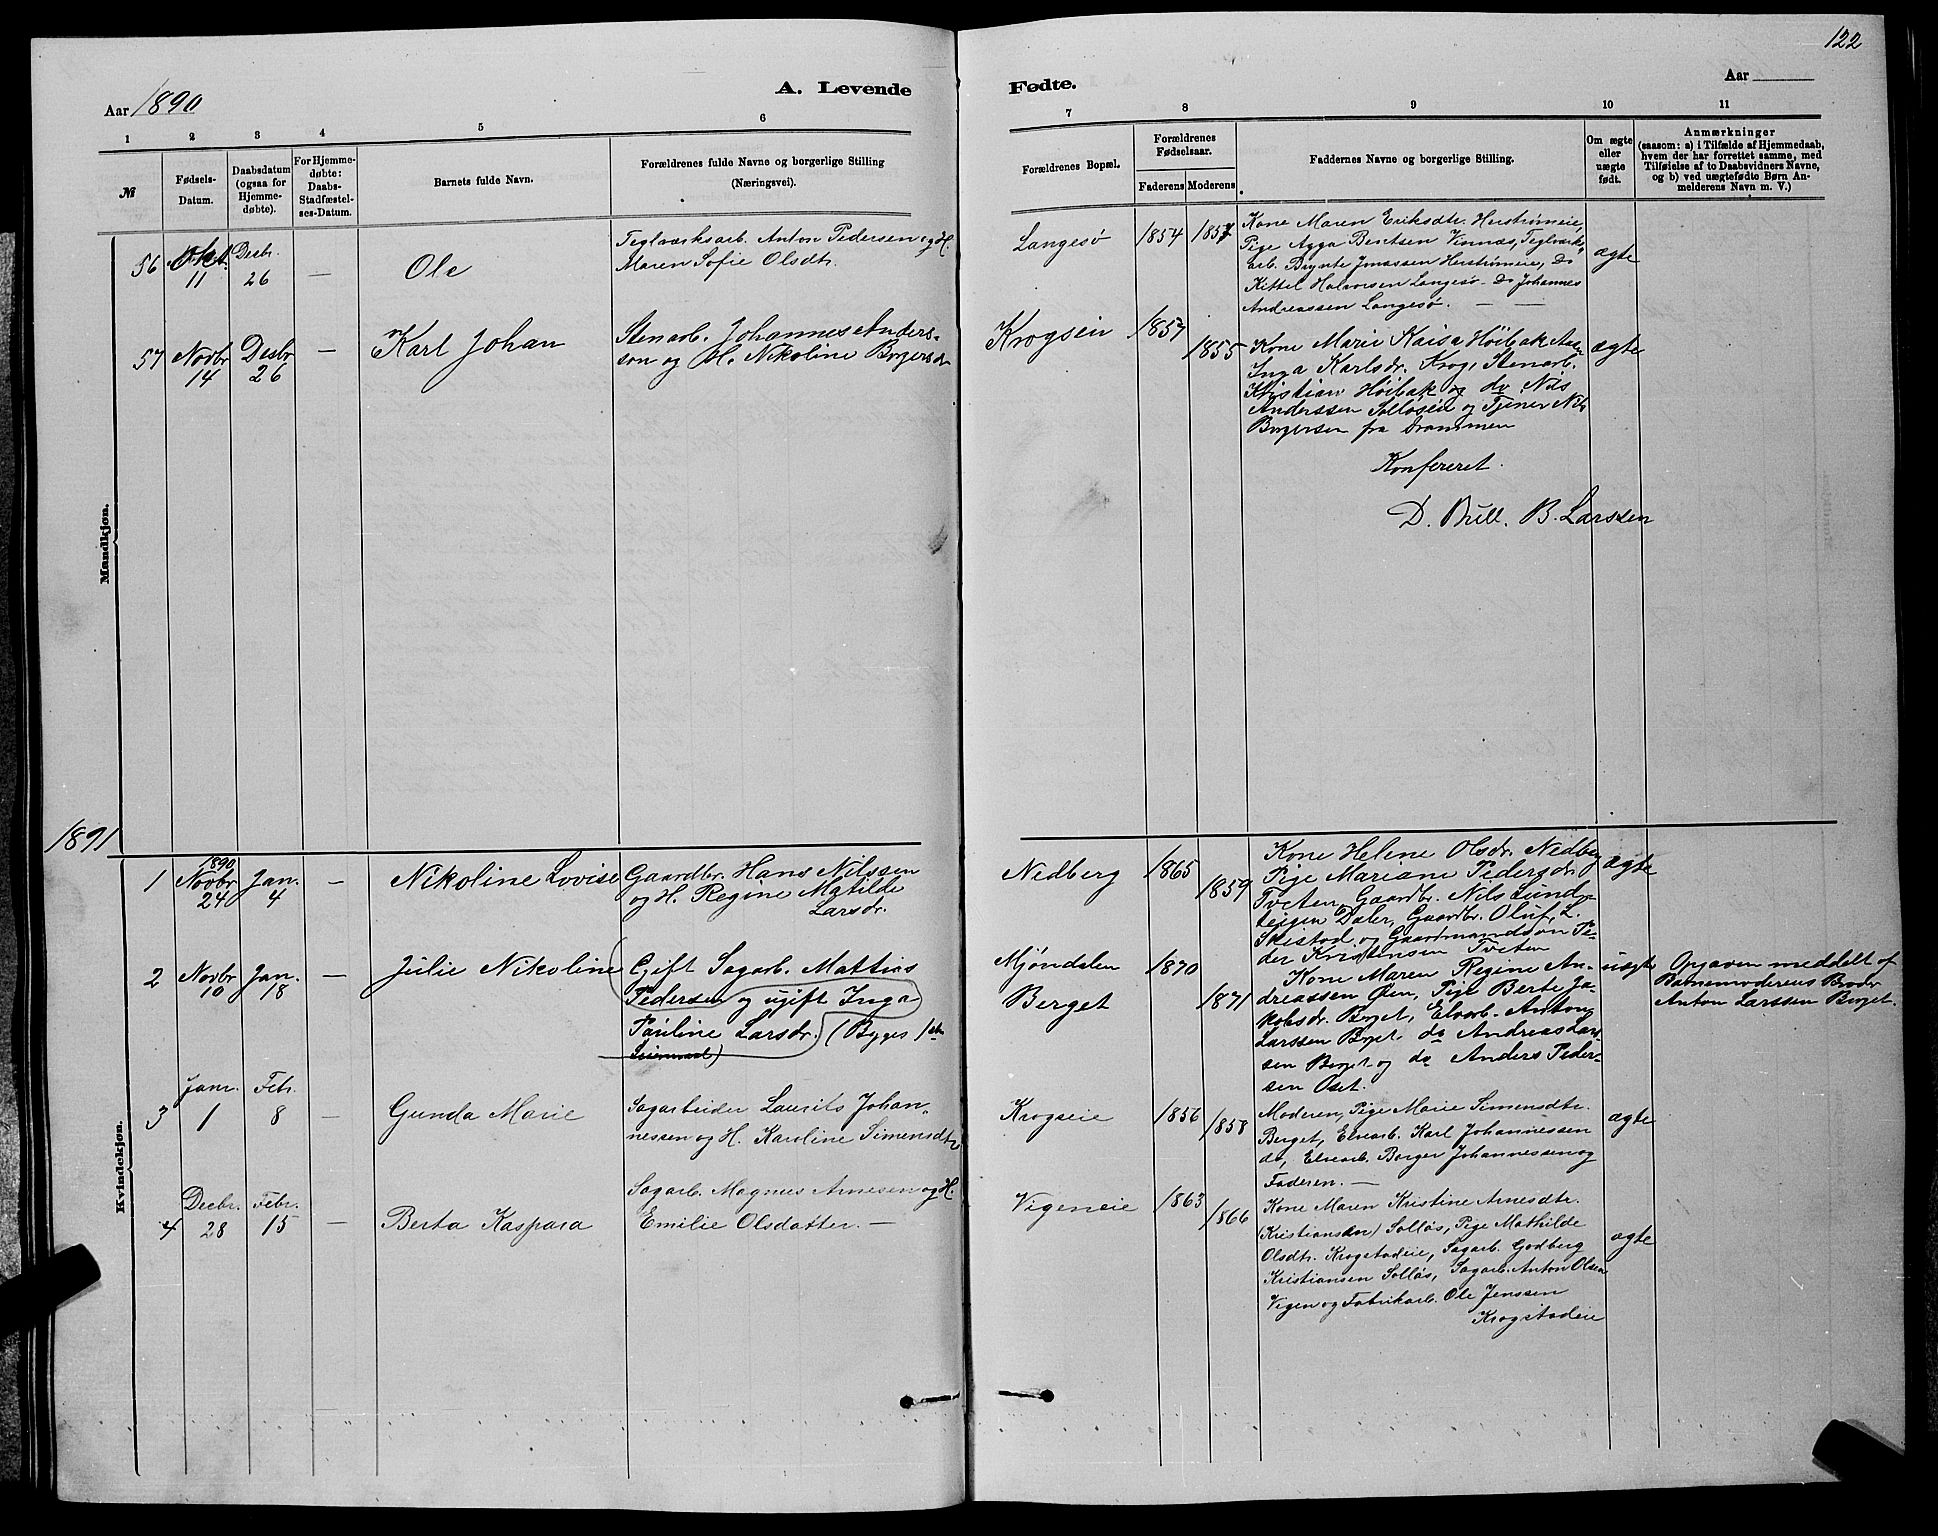 122
Aar 1890
A. Levende Fødte.
Aar
1 2 3 4 5 6 7 8 9 10 11
№
Fødsels-
Datum.
Daabsdatum
(ogsaa for
Hjemme-
døbte).
For Hjemme-
døbte:
Daabs-
Stadfæstel-
ses-Datum.
Barnets fulde Navn.
Forældrenes fulde Navne og borgerlige Stilling
(Næringsvei).
Forældrenes Bopæl.
Forældrenes
Fødselsaar.
Faderens Moderens
Faddernes Navne og borgerlige Stilling.
Om ægte
eller
uægte
født.
Anmærkninger
(saasom: a) i Tilfælde af Hjemmedaab,
hvem der har forrettet samme, med
Tilføielse af to Daabsvidners Navne,
og b) ved uægtefødte Børn An-
melderens Navn m. V.)
Mandkjøn.
56 Okt. 11
Desbr. 26
—
Ole
Teglværksarb. Anton Pedersen og H.
Maren Sofie Olsdtr.
Langesø
1854 1857
Kone Maren Eriksdtr. Herstrømeie,
Pige Agga Bentsen Vinnæs, Teglværks
arb. Brynte Jonassen Herstrømeie, Do
Kittel Halvorsen Langesø - Do Johannes
Andreassen Langesø. — —
ægte
57 Novbr 14
Desbr 26
—
Karl Johan
Stenarb. Johannes Anders-
son og H. Nikoline Borgersd
Krogseie
1857
1855
Kone Marie Kaisa Høibak
Inga Karlsdr. Krog, Stenarb.
Kristian Høibak og do Nils
Anderssen Solløseie og Tjener Nils
Borgersen fra Drammen
ægte
Konfereret.
D. Bull. B. Larssen
1891
Kvindekjøn.
1 1890 Novbr 24
Jan. 4
—
Nikoline Lovise
Gaardbr. Hans Nilssen
og H. Regine Matilde
Larsdr.
Nedberg
1865
1859
Kone Helene Olsdr. Nedberg
Pige Mariane Pedersdr
Tveten, Gaardbr. Nils
Daler, Gaardbr. Oluf. L.
Skistad og Gaardmandssøn Pe-
der Kristensen Tveten
ægte
2 Novbr 10
Jan. 18
—
Julie Nikoline
Gift Sagarb. Mattias
Pedersen og ugift Inga
Pauline Larsdr. (Begges 1ste
Leiermaal)
Mjøndalen
Berget
1870
1871
Kone Maren Regine An-
dreassen Øen, Pige Berte Ja-
kobsdr. Berget, Elvarb. Anton
Larssen Berget do Andreas Lars
sen Berget og do Anders Peder-
sen Oset.
uægte
Opgaven meddelt af
Barnemoderens Broder
Anton Larssen Berget.
3 Janr. 1
Febr. 8
—
Gunda Marie
Sagarbeider Laurits Johan-
nessen og H. Karoline Simensdtr
Krogseie
1856
1858
Moderen, Pige Marie Simensdtr.
Berget, Elvearb. Karl Johannessen
do, Elvearb. Borger Johannessen og
Faderen. —
ægte
4 Decbr. 28
Febr. 15
—
Berta Kaspara
Sagarb. Magnus Arnesen og H.
Emilie Olsdatter. —
Vigeneie
1863
1866
Kone Maren Kristine Arnesdtr.
(Kristiansen) Solløs, Pige Mathilde
Olsdtr. Krogstadeie, Sagarb. Godberg
Kristiansen Solløs, Sagarb. Anton Olsen
Vigen og Fabrikarb. Ole Jenssen
Krogstadeie
ægte